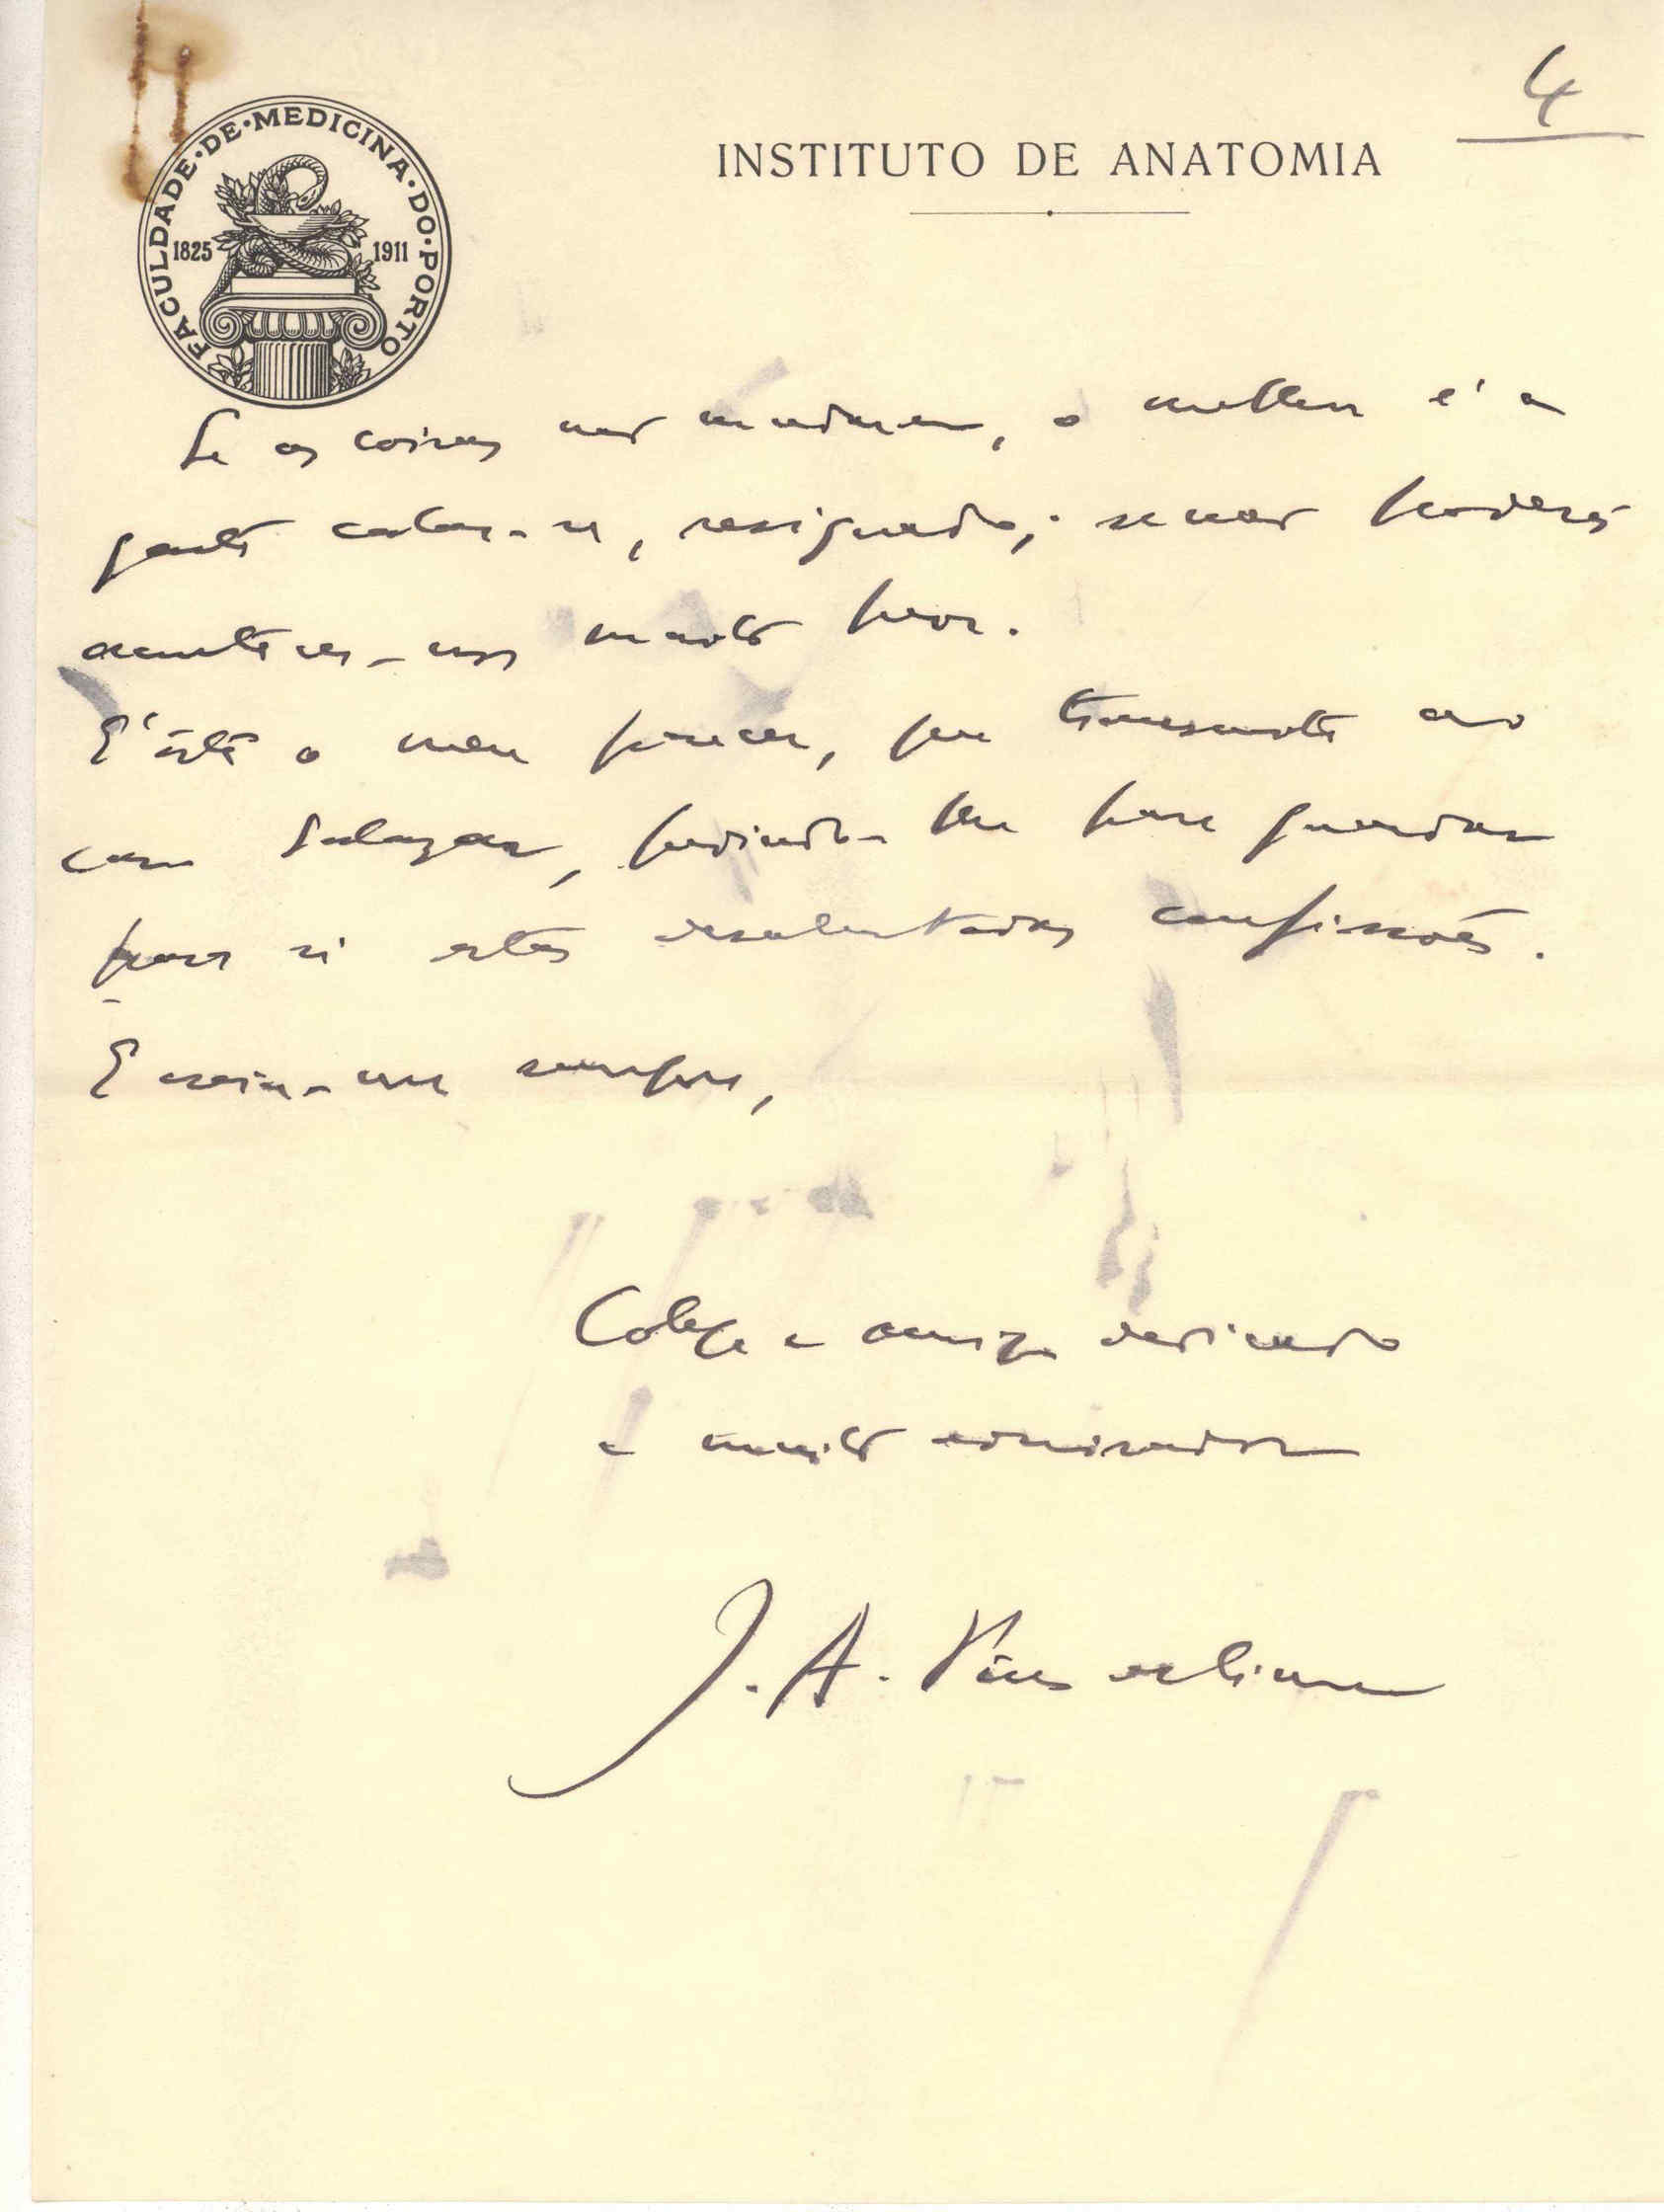 4
FACULDADE·DE·MEDICINA·DO·PORTO
1825 1911
INSTITUTO DE ANATOMIA
Se as coisas não mudarem, o melhor é a
gente calar-se, resignado; senão poderá
acontecer-nos muito pior.
E' êste o meu parecer, que transmito ao
caro Salazar, pedindo-lhe para guardar
para si estas desalentadas confissões.
E creia-me sempre,
Colega e amigo dedicado
e muito admirador
J. A. Pires de Lima